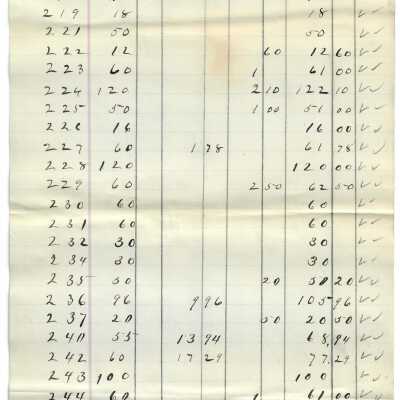 219 18 18 ✓✓
221 50 50 ✓
222 12 60 12 60 ✓✓
223 60 1 61 00 ✓✓
224 120 2 10 122 10 ✓✓
225 50 1 00 51 00 ✓✓
226 16 16 00 ✓✓
227 60 1 78 61 78 ✓✓
228 120 120 00 ✓✓
229 60 2 50 62 50 ✓✓
230 60 60 ✓✓
231 60 60 ✓✓
232 30 30 ✓✓
234 30 30 ✓✓
235 50 20 50 20 ✓✓
236 96 9 96 105 96 ✓✓
237 20 50 20 50 ✓✓
240 55 13 94 68,94 ✓✓
242 60 17 29 77,29 ✓✓
243 100 100 ✓✓
244 60 1 61 00 ✓✓